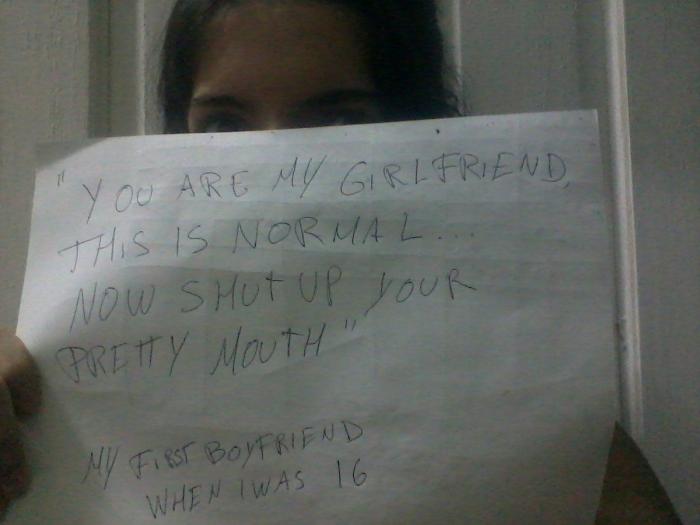 "YOU ARE MY GIRLFRIEND,
THIS IS NORMAL...
NOW SHUT UP YOUR
PRETTY MOUTH"
MY FIRST BOYFRIEND
WHEN I WAS 16